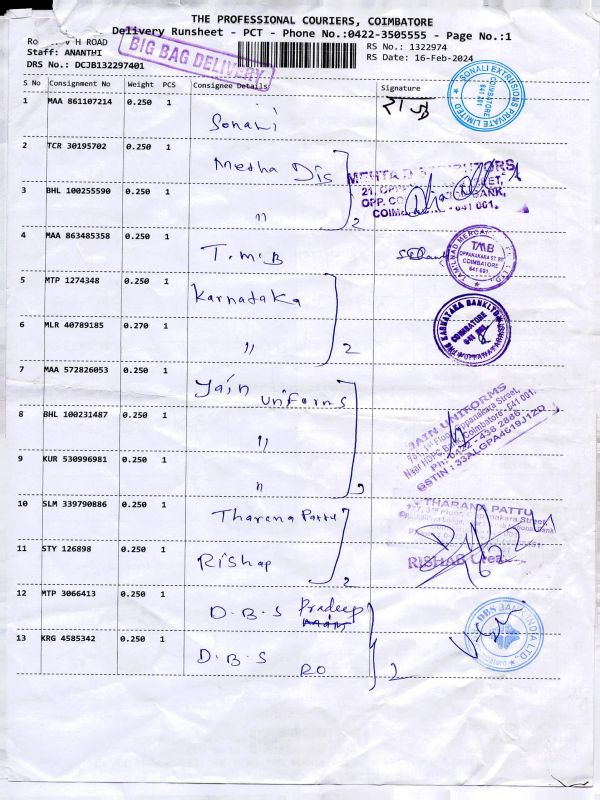 THE PROFESSIONAL COURIERS, COIMBATORE
Delivery Runsheet - PCT - Phone No.:0422-3505555 - Page No.:1
V H ROAD
BIG BAG DELIVERY
RS No.: 1322974
Staff: ANANTHI
RS Date: 16-Feb-2024
DRS No.: DCJB132297401
S No Consignment No Weight PCS Consignee Details Signature
1 MAA 861107214 0.250 1 Sonali राजु
SONALI EXTRUSIONS PRIVATE LIMITED
COIMBATORE
641 201
2 TCR 30195702 0.250 1 Mehta Dis
MEHTA
21,
3 BHL 100255590 0.250 1 " 2
OPP. BANK,
641 001.
4 MAA 863485358 0.250 1 T.M.B
TAMILNAD MERCANTILE
TMB
OPPANAKARA ST. BR
COIMBATORE
641 001
5 MTP 1274348 0.250 1 Karnataka
KARNATAKA BANK LTD
COIMBATORE
6 MLR 40789185 0.270 1 " 2
7 MAA 572826053 0.250 1 Jain uniforms
JAIN UNIFORMS
Floor, Oppanakara Street,
Near HDFC Coimbatore - 641 001.
8 BHL 100231487 0.250 1 "
Ph: 0422 - 438 2886
GSTIN : 33ALGPA4619J1ZD
9 KUR 530996981 0.250 1 " 3
10 SLM 339790886 0.250 1 Tharana Pattu
THARANA PATTU
Street,
11 STY 126898 0.250 1 Rishap 2
RISHAB
12 MTP 3066413 0.250 1 D.B.S Pradeep
DBS BANK INDIA LTD.
13 KRG 4585342 0.250 1 D.B.S RO 2